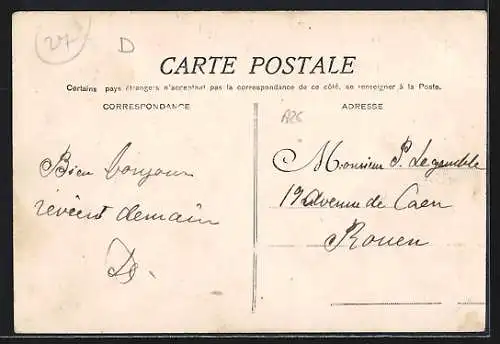 27
D
CARTE POSTALE
Certains pays étrangers n'acceptent pas la correspondance de ce côté, se renseigner à la Poste.
CORRESPONDANCE
ADRESSE
A26
Bien bonjour
demain
Monsieur P.
Avenue de Caen
Rouen